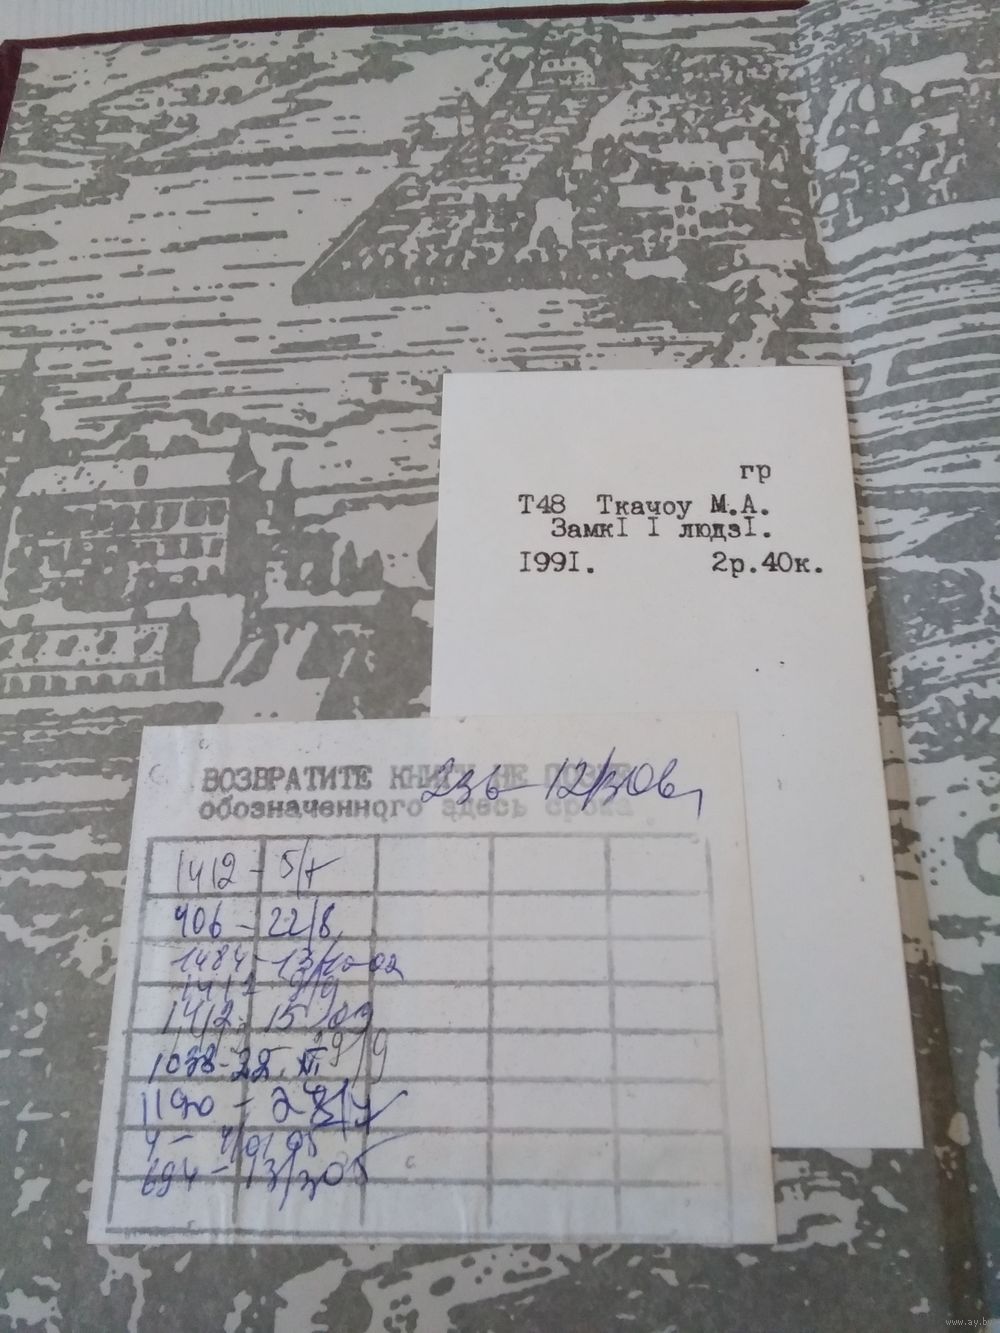 гр
Т48 Ткачоу М.А.
ЗамкI I людзI.
I99I. 2р.40к.
ВОЗВРАТИТЕ КНИГИ НЕ ПОЗЖЕ
обозначенного здесь срока
236 - 12/306
1412 - 5/х
406 - 22/8
1484 - 13/10-02
1412 - 9/9
1412 - 15/09
1038 - 22.
1190 -
4 -
694 - 13/305
www.ay.by